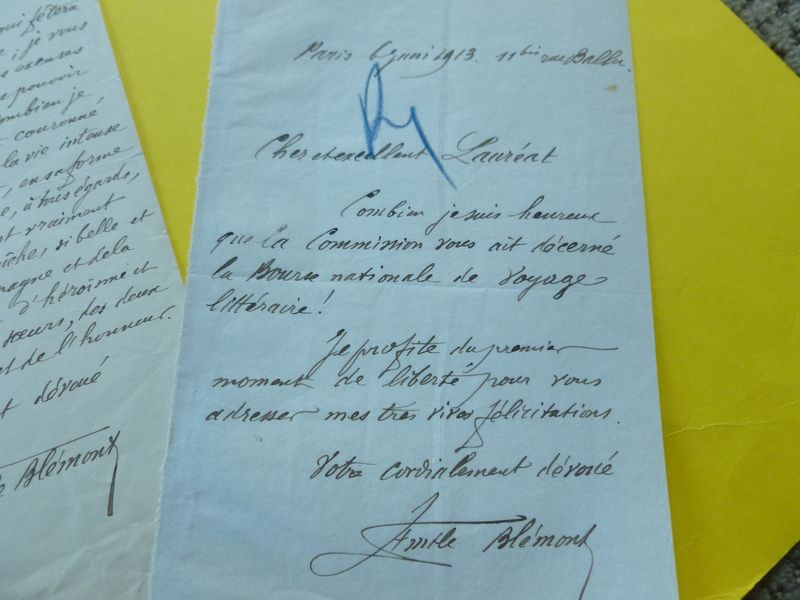 qui fêtera
; je vous
excuses
pouvoir
combien je
couronné
la vie intense
, en sa forme
, à tous égards,
vraiment
, si belle et
et de la
d'héroïsme et
sœurs, des deux
et de l'honneur.
dévoué
Blémont
Paris 6 juin 1913. 11 bis rue Ballu.
Cher et excellent Lauréat
Combien je suis heureux
que la Commission vous ait décerné
la Bourse nationale de voyage
littéraire !
Je profite du premier
moment de liberté pour vous
adresser mes très vives félicitations.
Votre cordialement dévoué
Emile Blémont